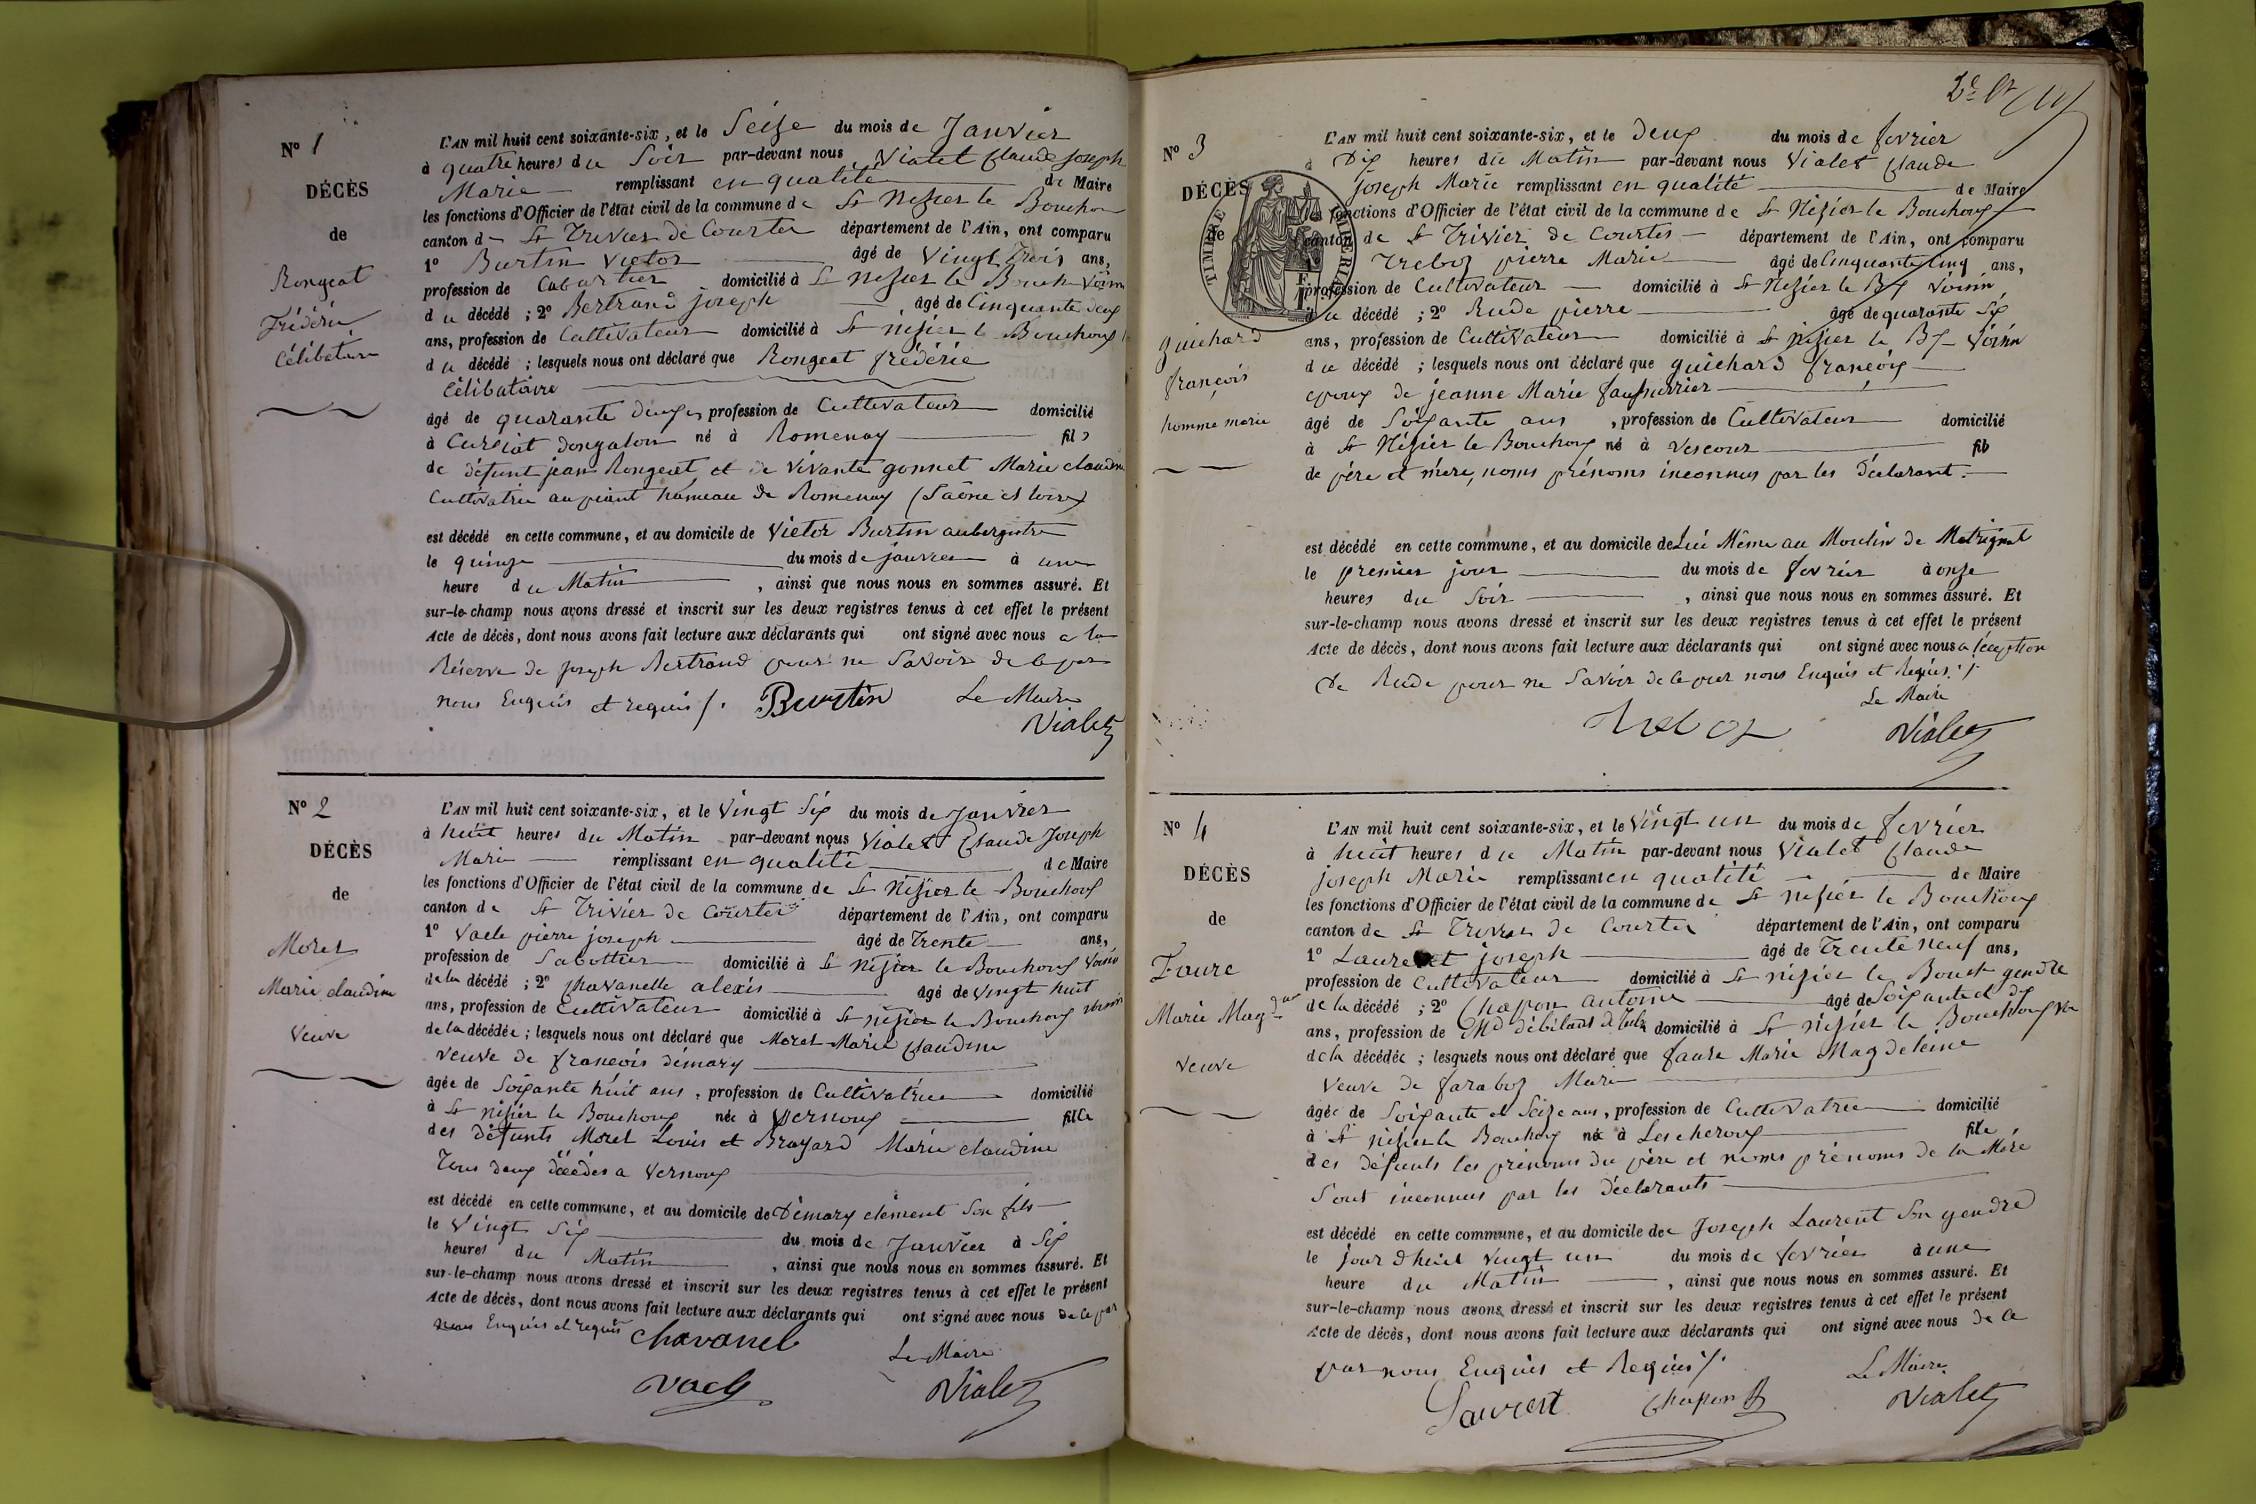 N° 1
DÉCÈS
de
Rongeat
frédéric
Célibataire
L'AN mil huit cent soixante-six, et le Seize du mois de Janvier
à quatre heures du Soir par-devant nous Vialet Claude Joseph
Marie remplissant en qualité de Maire
les fonctions d'Officier de l'état civil de la commune de St Nizier le Bouchoux
canton de St Trivier de Courtes département de l'Ain, ont comparu
1° Burtin Victor âgé de Vingt Trois ans,
profession de Cabartier domicilié à St Nizier le Bouch Voisin
du décédé ; 2° Bertrand joseph âgé de Cinquante deux
ans, profession de Cultivateur domicilié à St nizier le Bouchoux
du décédé ; lesquels nous ont déclaré que Rongeat frédéric
Célibataire
âgé de quarante deux, profession de Cultivateur domicilié
à Curciat dongalon né à Romenay fils
de défunt jean Rongeat et de vivante gonnet Marie claudine
Cultivatrice au hameau de Romenay (Saône et loire)
est décédé en cette commune, et au domicile de Victor Burtin aubergiste
le quinze du mois de janvier à une
heure du Matin, ainsi que nous nous en sommes assuré. Et
sur-le-champ nous avons dressé et inscrit sur les deux registres tenus à cet effet le présent
Acte de décès, dont nous avons fait lecture aux déclarants qui ont signé avec nous a la
Réserve de joseph Bertrand pour ne Savoir de ce par
nous Enquis et requis /. Burtin Le Maire
Vialet
N° 2
DÉCÈS
de
Morel
Marie claudine
Veuve
L'AN mil huit cent soixante-six, et le Vingt Six du mois de Janvier
à huit heures du Matin par-devant nous Vialet Claude Joseph
Marie remplissant en qualité de Maire
les fonctions d'Officier de l'état civil de la commune de St Nizier le Bouchoux
canton de St Trivier de Courtes département de l'Ain, ont comparu
1° Vacle pierre joseph âgé de Trente ans,
profession de Sabottier domicilié à St Nizier le Bouchoux Voisin
de la décédé ; 2° Chavanelle alexis âgé de vingt huit
ans, profession de Cultivateur domicilié à St nizier le Bouchoux voisin
de la décédée ; lesquels nous ont déclaré que Morel Marie Claudine
veuve de francois démary
âgée de Soixante huit ans, profession de Cultivatrice domicilié
à St nizier le Bouchoux née à Vernoux fille
des défunts Morel Louis et Brayard Marie claudine
Tous deux décédés a Vernoux
est décédé en cette commune, et au domicile de Démary clément Son fils
le Vingt Six du mois de Janvier à Six
heures du Matin, ainsi que nous nous en sommes assuré. Et
sur-le-champ nous avons dressé et inscrit sur les deux registres tenus à cet effet le présent
Acte de décès, dont nous avons fait lecture aux déclarants qui ont signé avec nous de ce par
nous Enquis et requis Chavanel
Le Maire
Vacle Vialet
N° 3
DÉCÈS
de
TIMBRE IMPÉRIAL
guichard
françois
homme marié
L'AN mil huit cent soixante-six, et le deux du mois de fevrier
à Dix heures du Matin par-devant nous Vialet Claude
joseph Marie remplissant en qualité de Maire
les fonctions d'Officier de l'état civil de la commune de St Nizier le Bouchoux
canton de St Trivier de Courtes département de l'Ain, ont comparu
Treboz pierre Marie âgé de Cinquante Cinq ans,
profession de Cultivateur domicilié à St Nizier le Bx Voisin
du décédé ; 2° Rude pierre âgé de quarante Six
ans, profession de Cultivateur domicilié à St nizier le Bx Voisin
du décédé ; lesquels nous ont déclaré que guichard françois
epoux de jeanne Marie
âgé de Soixante ans, profession de Cultivateur domicilié
à St Nizier le Bouchoux né à Vescour fils
de père et mère, noms prénoms inconnus par les Déclarant.
est décédé en cette commune, et au domicile de Lui Même au Moulin de Matrignat
le premier jour du mois de fevrier à onze
heures du Soir, ainsi que nous nous en sommes assuré. Et
sur-le-champ nous avons dressé et inscrit sur les deux registres tenus à cet effet le présent
Acte de décès, dont nous avons fait lecture aux déclarants qui ont signé avec nous a léxception
De Rude pour ne Savoir de ce par nous Enquis et Requis /.
Le Maire
Treboz Vialet
N° 4
DÉCÈS
de
Faure
Marie Magdne
veuve
L'AN mil huit cent soixante-six, et le Vingt un du mois de fevrier
à huit heures du Matin par-devant nous Vialet Claude
joseph Marie remplissant en qualité de Maire
les fonctions d'Officier de l'état civil de la commune de St nizier le Bouchoux
canton de St Trivier de Courtes département de l'Ain, ont comparu
1° Laurent joseph âgé de Trente neuf ans,
profession de Cultivateur domicilié à St nizier le Bouch gendre
de la décédé ; 2° Chapon antoine âgé de Soixante et dix
ans, profession de Md débitant de Tabac domicilié à St nizier le Bouchoux
de la décédée ; lesquels nous ont déclaré que faure Marie Magdeleine
Veuve de faraboz Marie
âgée de Soixante et Seize ans, profession de Cultivatrice domicilié
à St nizier le Bouchoux née à Lescheroux fille
des défunts les prénoms du père et noms prénoms de la Mère
Sont inconnus par les Déclarants
est décédé en cette commune, et au domicile de Joseph Laurent Son gendre
le jour dhuit vingt un du mois de fevrier à une
heure du Matin, ainsi que nous nous en sommes assuré. Et
sur-le-champ nous avons dressé et inscrit sur les deux registres tenus à cet effet le présent
Acte de décès, dont nous avons fait lecture aux déclarants qui ont signé avec nous de ce
par nous Enquis et Requis /.
Le Maire
Laurent Chapon Vialet